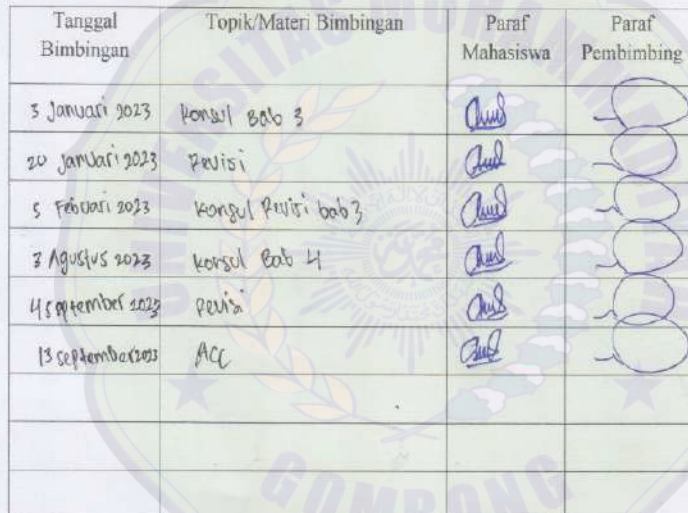 Tanggal Bimbingan
Topik/Materi Bimbingan
Paraf Mahasiswa
Paraf Pembimbing
3 Januari 2023 Konsul Bab 3
20 Januari 2023 Revisi
5 Februari 2023 Konsul Revisi bab 3
3 Agustus 2023 Konsul Bab 4
4 september 2023 Revisi
13 september 2023 ACC
UNIVERSITAS MUHAMMADIYAH
GOMBONG